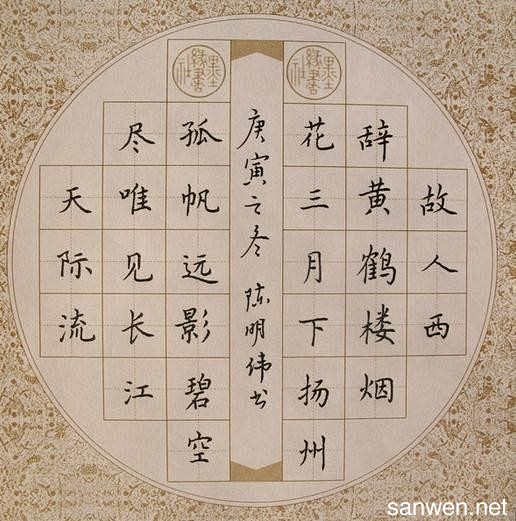 故人西
辞黄鹤楼烟
花三月下扬州
庚寅之冬 陈明伟书
孤帆远影碧空
尽唯见长江
天际流
sanwen.net